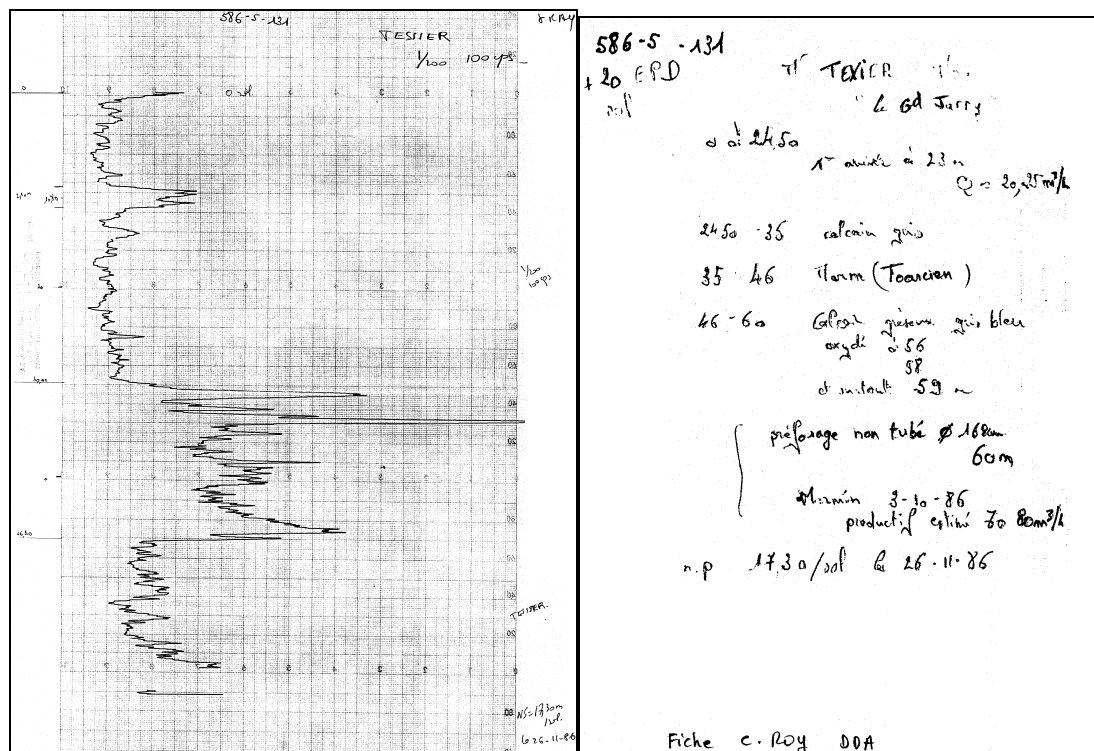 586-5-131
γ RAY
TESSIER
1/200 100 cps
0 sol
1/200
100 cps
TESSIER.
NS=17,30m
/sol.
le 26-11-86
586-5-131
+ 20 EPD
sol
Mr TEXIER
le Gd Jarry
0 à 24,50
1re arrivée à 23 m
Q = 20,25 m³/h
24 50 - 35 calcaire gris
35 - 46 Marne (Toarcien)
46 - 60 Calcaire gréseux gris bleu
oxydé à 56
58
et surtout 59 m
préforage non tubé ø 168mm
60m
3-10-86
productif estimé 70 80m³/h
n.p 17,30/sol le 26-11-86
Fiche C. ROY DDA